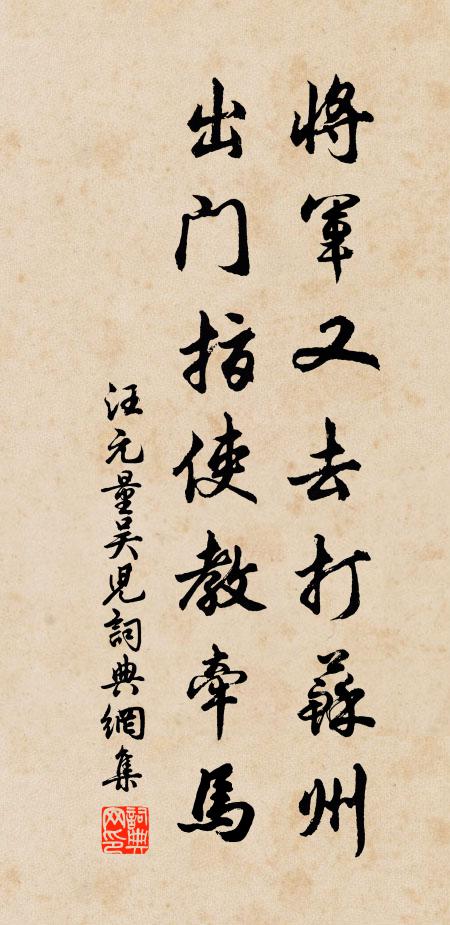 將軍又去打蘇州
出門指使教牽馬
汪元量吳児詞典網集
詞典网印